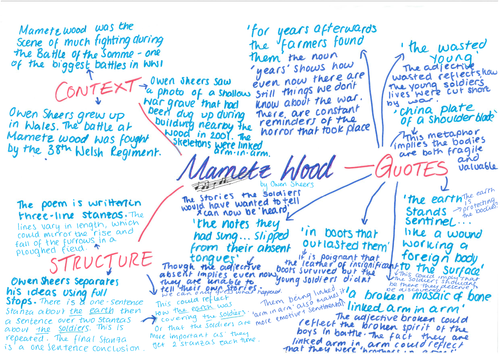 Mametz Wood was the
scene of much fighting during
the Battle of the Somme - one
of the biggest battles in WW1
CONTEXT
Owen Sheers grew up
in Wales. The battle at
Mametz Wood was fought
by the 38th Welsh Regiment.
Owen Sheers saw
a photo of a shallow
war grave that had
been dug up during
building nearby the
wood in 2001. The
skeletons were linked
arm-in-arm.
'for years afterwards
the farmers found
them' the noun
'years' shows how
even now there are
still things we don't
know about the war.
There are constant
reminders of the
horror that took place
'the wasted
young'
The adjective
wasted reflects how
the young soldiers
lives were cut short
by war
'china plate
of a shoulder blade'
This metaphor
implies the bodies
are both fragile
and
valuable
Mametz Wood
by Owen Sheers
QUOTES
'the earth
stands
sentinel...
like a wound
working a
foreign body
to the surface
The earth
is
protecting
the bodies
The stories the soldiers
would have wanted to tell
can now be 'heard'
'the notes they
had sung... slipped
from their absent
tongues'
Though the adjective
absent implies even now,
they are unable to
tell their own stories.
'in boots that
outlasted them'
It is poignant that
the leather of insignificant
boots survived but the
young soldiers didn't
'a broken mosaic of bone
linked arm in arm'
The adjective broken could
reflect the broken spirit of the
boys in battle. The fact they are
linked arm in arm could reflect
that they were
Them being linked
'arm in arm' also makes
The poem is written in
three-line stanzas. The
lines vary in length, which
could mirror the rise and
fall of the furrows in a
ploughed field
STRUCTURE
Owen Sheers separates
his ideas using full
stops. There is one-sentence
stanza about the earth then
a sentence over two stanzas
about the soldiers. This is
repeated. The final stanza
is a one sentence conclusion
This could reflect
how the earth was
covering the soldiers.
Or that the soldiers are
more important as they
get 2 stanzas each time.